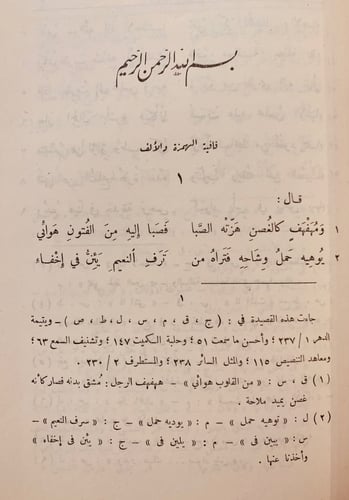 بسم الله الرحمن الرحيم
قافية الهمزة والألف
١
قال :
١ وَمُهَفْهَفٍ كالغُصنِ هَزَّتْه الصَّبا فَصَبا إليهِ مِنَ الفُتونِ هَوائي
٢ يُوهيهِ حَملُ وِشاحِهِ فَتَراهُ من تَرَفِ النعيمِ يَئِنُّ في إخفاءِ
١
جاءت هذه القصيدة في : ( ج ، ق ، م ، س ، ل ، ط ، ص ) ـ ويتيمة
الدهر ١ / ٢٣٧ ؛ وأحسن ما سمعت ٥١ ؛ وحلبة الكميت ١٤٧ ؛ وتشنيف السمع ٦٣ ؛
ومعاهد التنصيص ١١٥ ؛ والمثل السائر ٢٣٨ ؛ والمستطرف ٢ / ٢٣٠ .
( ١ ) ق ، س : « من القلوب هوائي » ـ هفهف الرجل : مُشق بدنه فصار كأنه
غصن يميد ملاحة .
( ٢ ) ل : « توهيه حمل » ـ م : « يوديه حمل » ـ ج : « سرف النعيم » ـ
س : « يبين في » ـ م : « يلين في » ـ ج : « يئن في إخفاء »
وأخذنا عنها .